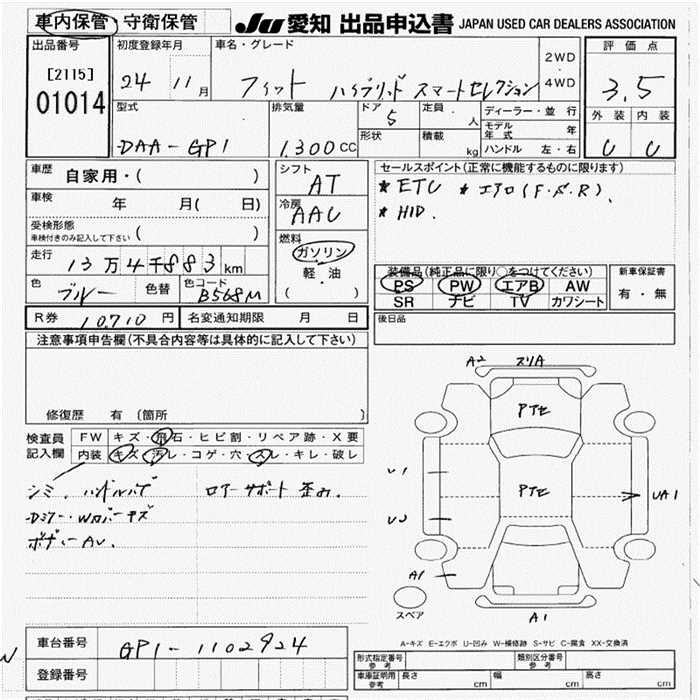 車内保管 守衛保管 JU 愛知 出品申込書 JAPAN USED CAR DEALERS ASSOCIATION
出品番号 初度登録年月 車名・グレード 2WD 評価点
[2115] 24 11月 フィット ハイブリッド スマートセレクション 4WD 3.5
01014 型式 排気量 ドア 5 定員 人 ディーラー・並行 外装 内装
DAA-GP1 1.300CC 形状 積載 kg モデル年式 年
ハンドル 左・右
車歴 自家用・( ) シフト AT セールスポイント(正常に機能するものに限ります)
車検 年 月( 日) 冷房 AAC ★ETC ★エアロ(F.S.R).
受検形態 ( ) ★HID.
車検付きのみ記入して下さい 燃料 ガソリン
走行 13万4千883km 軽・油 装備品(純正品に限り○をつけてください) 新車保証書
色 ブルー 色替 色コード B568M ( ) PS PW エアB AW 有・無
SR ナビ TV カワシート
R券 10,710円 名変通知期限 月 日 後日品
注意事項申告欄(不具合内容等は具体的に記入して下さい)
修復歴 有 (箇所 )
検査員 FW キズ・飛石・ヒビ割・リペア跡・X要
記入欄 内装 キズ・汚レ・コゲ・穴・スレ・キレ・破レ
シミ. ハンドルハゲ ロアーサポート 歪み.
ボディーAU.
A2 スリA
PTセ
U1
PTセ
UA1
A1
スペア A1
A-キズ E-エクボ U-凹み W-補修跡 S-サビ C-腐食 XX-交換済
車台番号 GP1-1102924
登録番号
形式指定番号 参考 類別区分番号 参考
車庫証明用 参考 長さ cm 幅 cm 高さ cm